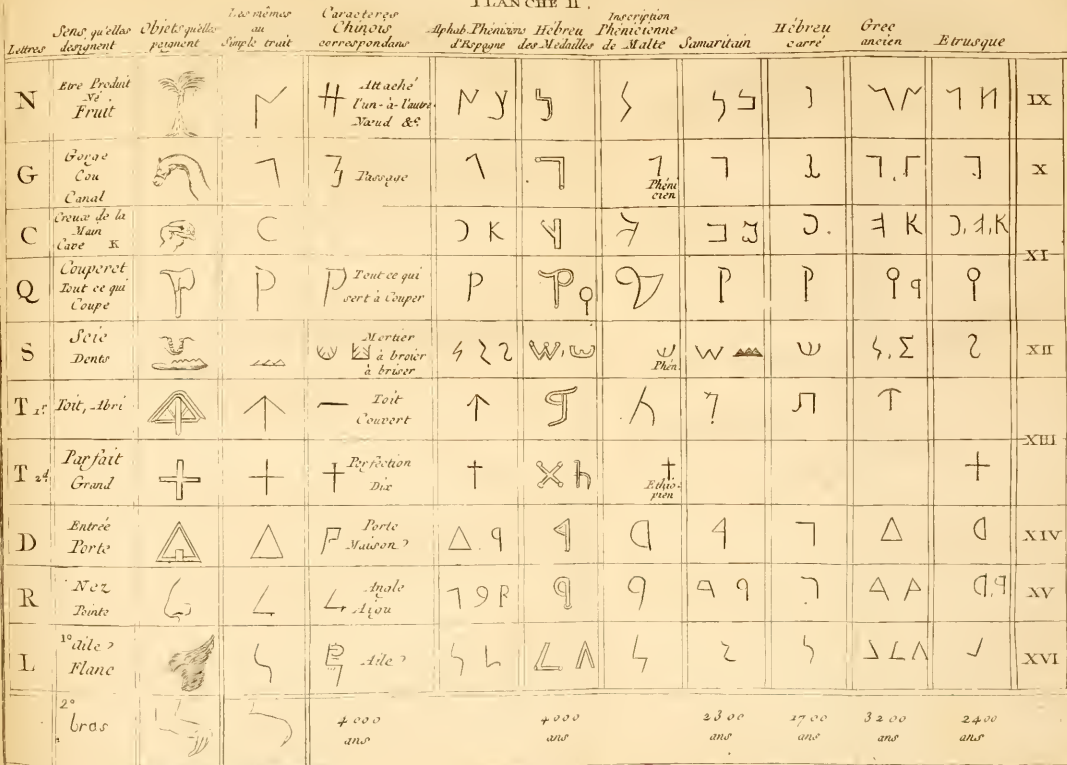 PLANCHE II.
Lettres
Sens, qu'elles
designent
Objets qu'elles
peignent
Les mêmes
au
Simple trait
Caracteres
Chinois
correspondans
Alphab. Phéniciens
d'Espagne
Hébreu
des Medailles
Inscription
Phénicienne
de Malte
Samaritain
Hébreu
carré
Grec
ancien
Etrusque
N
Etre Produit
Né
Fruit
Attaché
l'un-à-l'autre
Nœud &c.
IX
G
Gorge
Cou
Canal
Passage
Phéni
cien
X
C
Creux de la
Main
Cave K
XI
Q
Couperet
Tout ce qui
Coupe
Tout ce qui
sert à Couper
S
Scie
Dents
Mortier
à broier
à briser
Phén.
XII
T 1.r
Toit, Abri
Toit
Couvert
XIII
T 2.d
Parfait
Grand
Perfection
Dix
Ethio-
pien
D
Entrée
Porte
Porte
Maison ?
XIV
R
Nez
Pointe
Angle
Aigu
XV
L
1° Aile ?
Flanc
Aile ?
XVI
2°
bras
4000
ans
4000
ans
2300
ans
1700
ans
3200
ans
2400
ans